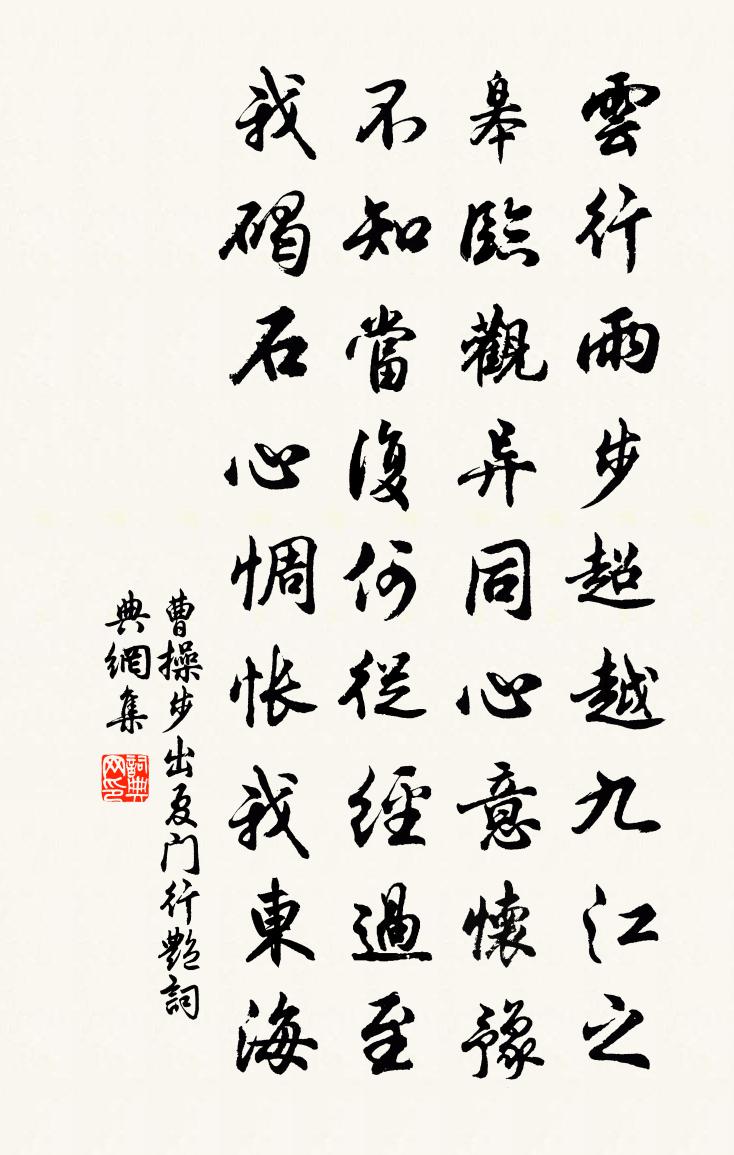 雲行雨步超越九江之
皋臨觀异同心意懷豫
不知當復何從經過至
我碣石心惆怅我東海
曹操步出夏门行艷詞
典網集
詞典网印